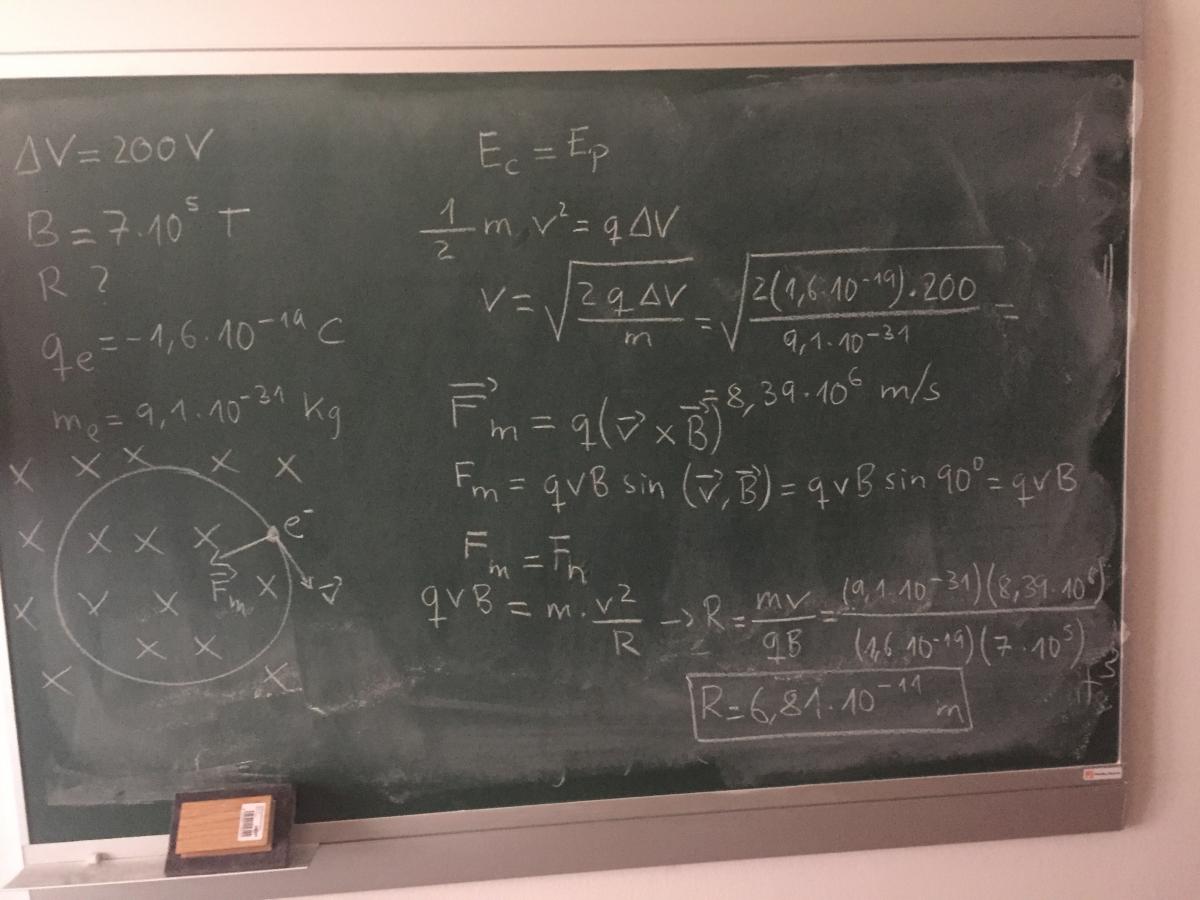 ΔV = 200 V
B = 7·10⁵ T
R ?
qₑ = -1,6·10⁻¹⁹ C
mₑ = 9,1·10⁻³¹ Kg
x x x x x
x x x x e⁻
F⃗ₘ x v⃗
x x x
x x
x x
E_c = E_p
1/2 m v² = q ΔV
v = √(2 q ΔV / m) = √(2(1,6·10⁻¹⁹)·200 / 9,1·10⁻³¹) =
= 8,39·10⁶ m/s
F⃗ₘ = q(v⃗ × B⃗)
Fₘ = qvB sin (v⃗, B⃗) = qvB sin 90° = qvB
Fₘ = Fₙ
qvB = m · v²/R → R = mv/qB = (9,1·10⁻³¹)(8,39·10⁶) / (1,6·10⁻¹⁹)(7·10⁵)
R = 6,81·10⁻¹¹ m